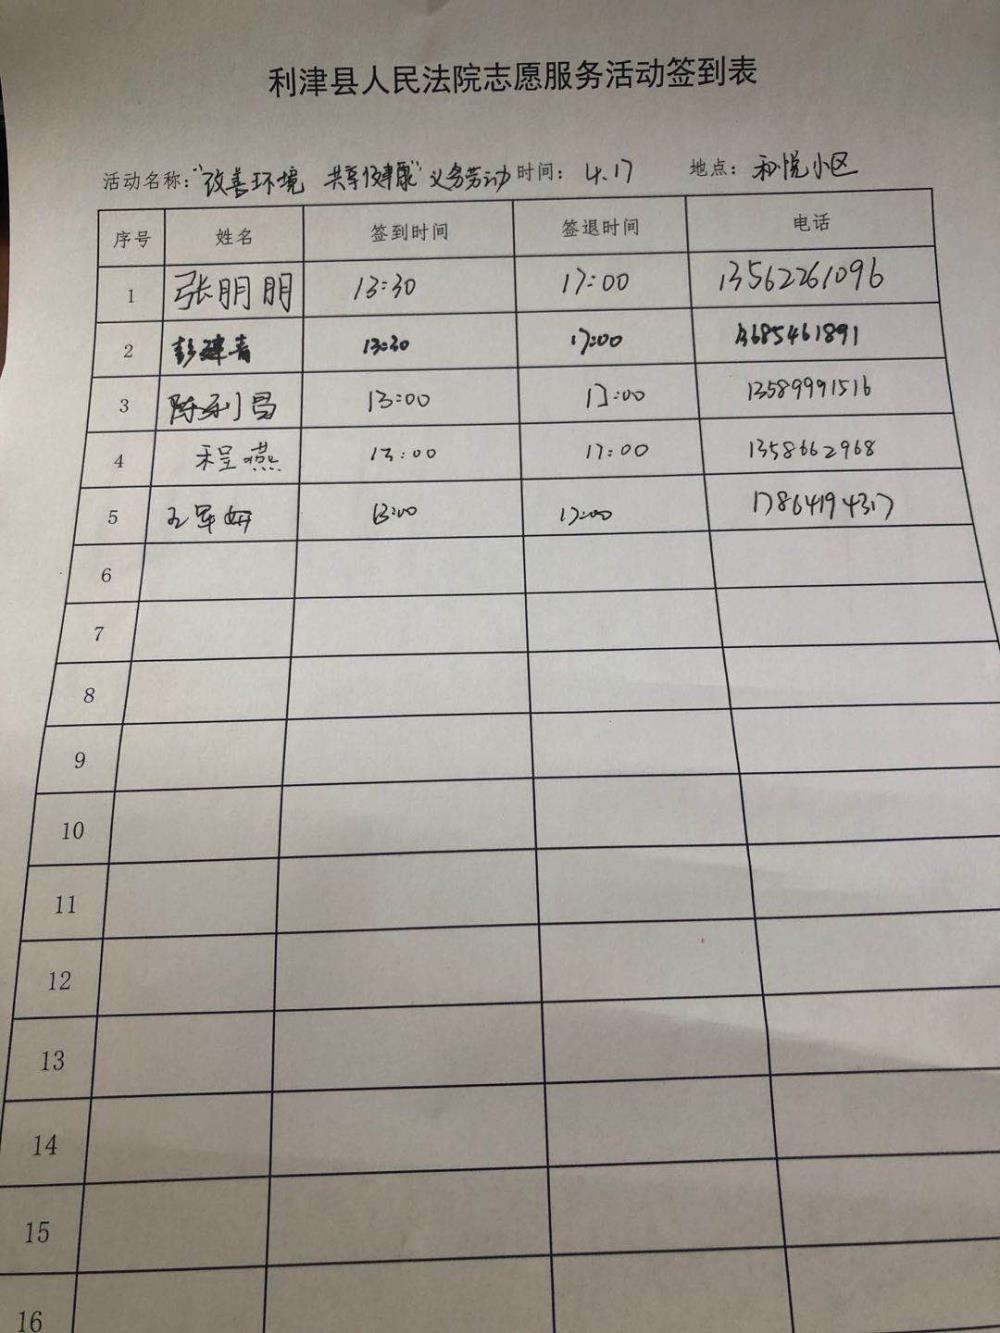 利津县人民法院志愿服务活动签到表
活动名称:"改善环境 共享健康"义务劳动 时间: 4.17 地点: 和悦小区
序号 姓名 签到时间 签退时间 电话
1 张明明 13:30 17:00 13562261096
2 彭建青 13:30 17:00 13685461891
3 陈利昌 13:00 17:00 13589991516
4 程燕 13:00 17:00 1358662968
5 王军妍 13:00 17:00 17864194317
6
7
8
9
10
11
12
13
14
15
16